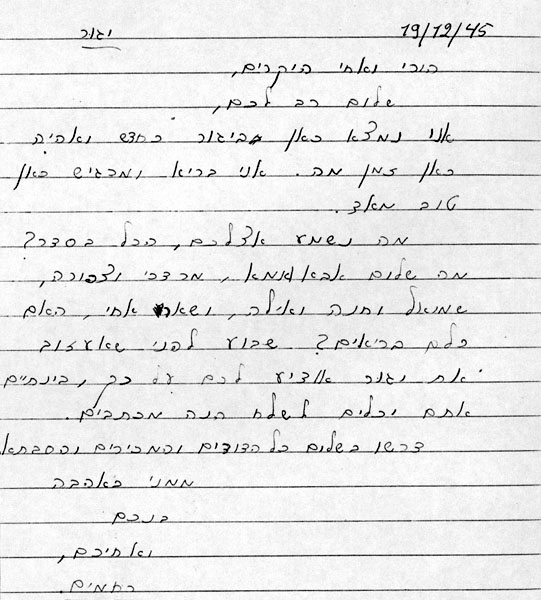 יגור 19/12/45
הורי ואחי היקרים,
שלום רב לכם,
אני נמצא כאן ביגור כחדש ואהיה
כאן זמן מה. אני בריא ומרגיש כאן
טוב מאד.
מה נשמע אצלכם, הכל בסדר?
מה שלום אבא ואמא, מרדכי וצפורה,
שמואל וחנה ואילה, ושאר אחי, האם
כלם בריאים? שבוע לפני שאעזוב
את יגור אודיע לכם על כך, בינתיים
אתם יכלים לשלח הנה מכתבים.
דרשו בשלום כל הדודים והמכירים והסבתא
ממני באהבה
בנכם
ואחיכם,
רחמים.